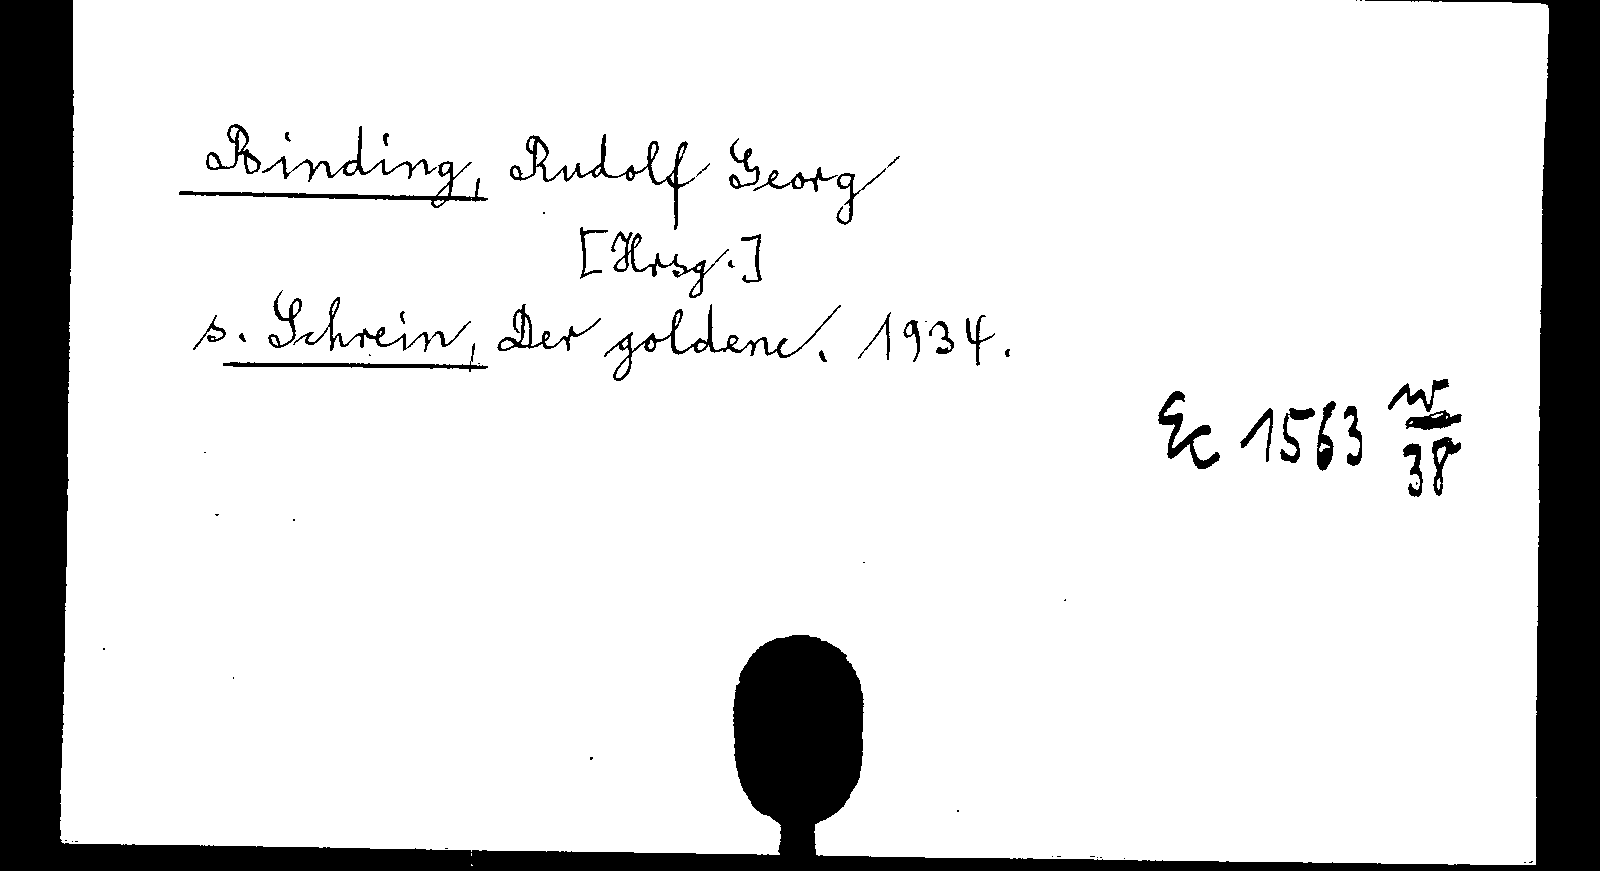 Binding, Rudolf Georg
[Hrsg.]
s. Schrein, Der goldene. 1934.
Ec 1563 w/38